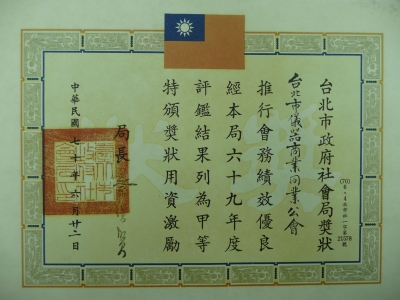 台北市政府社會局獎狀
台北市儀器商業同業公會
推行會務績效優良
經本局六十九年度
評鑑結果列為甲等
特頒獎狀用資激勵
局長
中華民國七十年六月廿二日